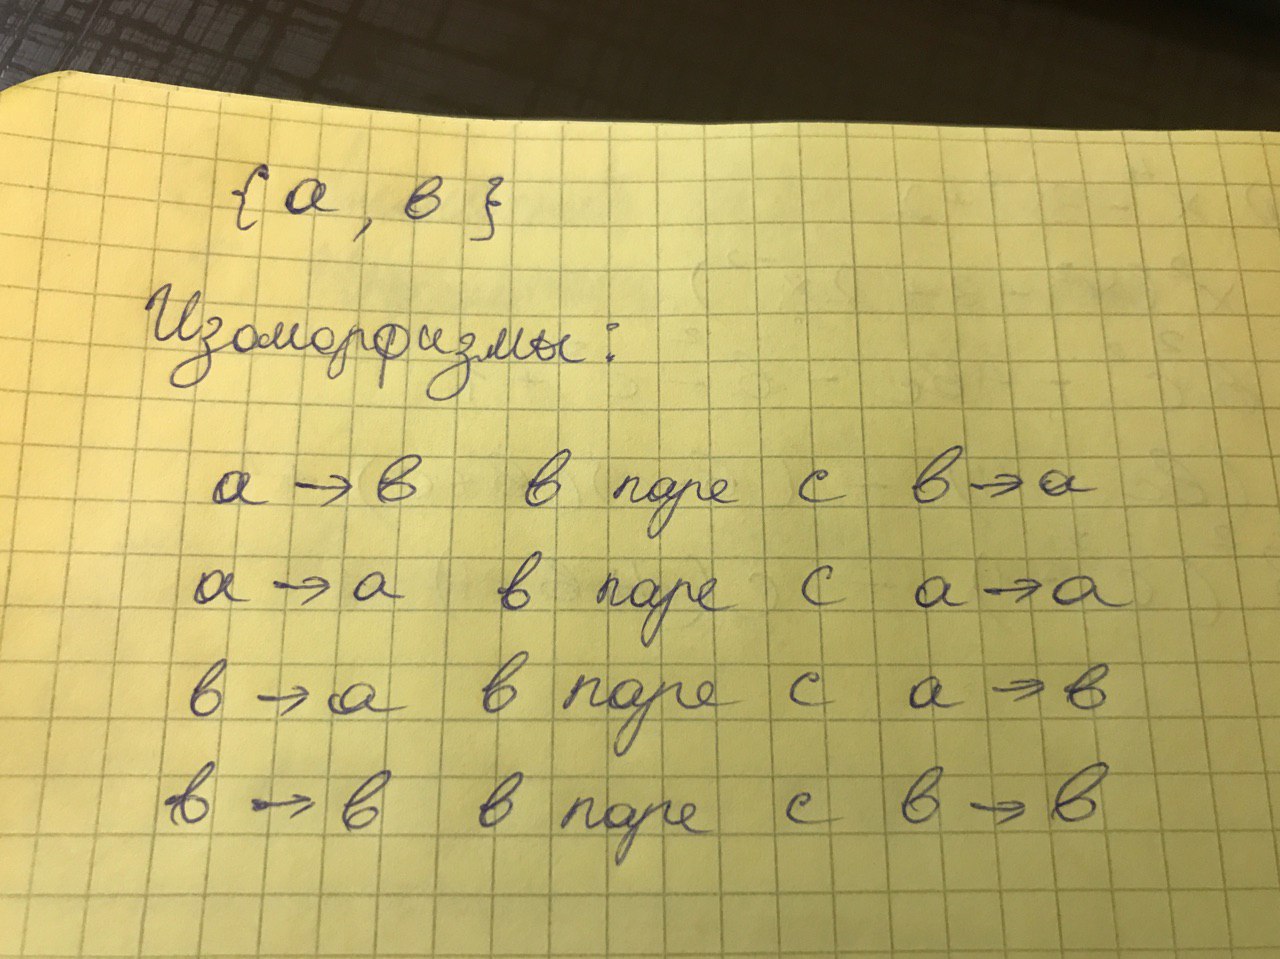 {а, в}
Изоморфизмы:
а → в в паре с в → а
а → а в паре с а → а
в → а в паре с а → в
в → в в паре с в → в